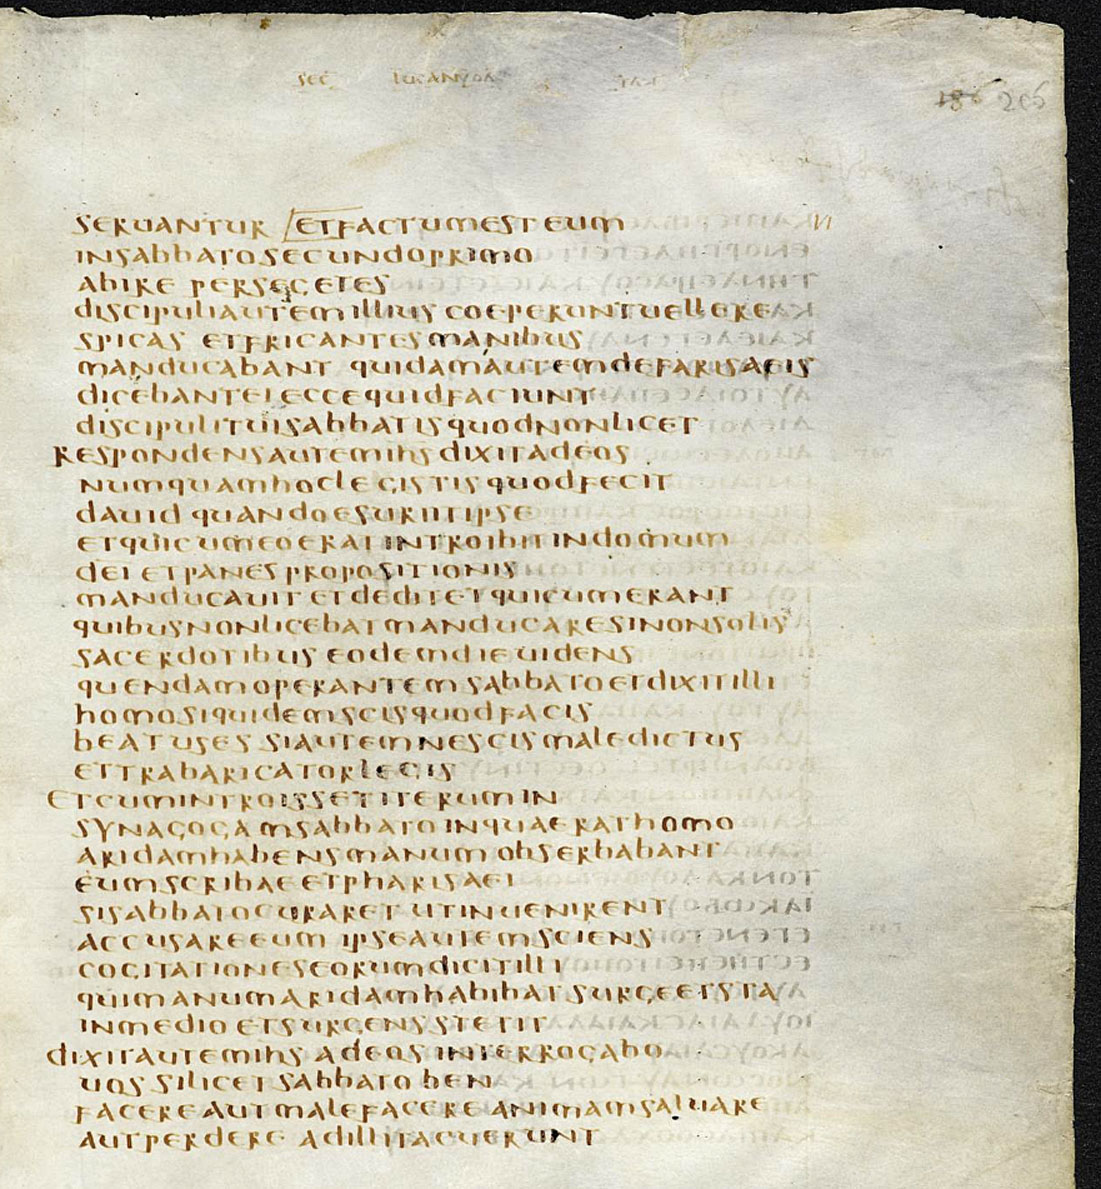 SEC LUCAN
205
SERUANTUR ETFACTUMESTEUM
INSABBATOSECUNDOPRIMO
ABIRE PERSEGETES
DISCIPULIAUTEMILLIUS COEPERUNTUELLERE
SPICAS ETFRICANTESMANIBUS
MANDUCABANT QUIDAMAUTEMDEFARISAEIS
DICEBANTEIECCEQUIDFACIUNT
DISCIPULITUISABBATISQUODNONLICET
RESPONDENSAUTEMIHSDIXITADEOS
NUMQUAMHOCLEGISTISQUODFECIT
DAUID QUANDOESURIITIPSE
ETQUICUMEOERATINTROIBITINDOMUM
DEI ETPANESPROPOSITIONIS
MANDUCAUITETDEDITETQUICUMERANT
QUIBUSNONLICEBATMANDUCARESINONSOLIS
SACERDOTIBUS EODEMDIEUIDENS
QUENDAMOPERANTEMSABBATOETDIXITILLI
HOMOSIQUIDEMSCISQUODFACIS
BEATUSES SIAUTEMNESCISMALEDICTUS
ETTRABARICATORLEGIS
ETCUMINTROISSETITERUMIN
SYNAGOGAMSABBATOINQUAERATHOMO
ARIDAMHABENSMANUMOBSERBABANT
EUMSCRIBAEETPHARISAEI
SISABBATOCURARET UTINUENIRENT
ACCUSAREEUM IPSEAUTEMSCIENS
COGITATIONESEORUMDICITILLI
QUIMANUMARIDAMHABIBATSURGEETSTA
INMEDIO ETSURGENSSTETIT
DIXITAUTEMIHS ADEOSINTERROGABO
UOSSILICETSABBATO BEN
FACEREAUTMALEFACEREANIMAMSALUARE
AUTPERDERE ADILLITACUERUNT